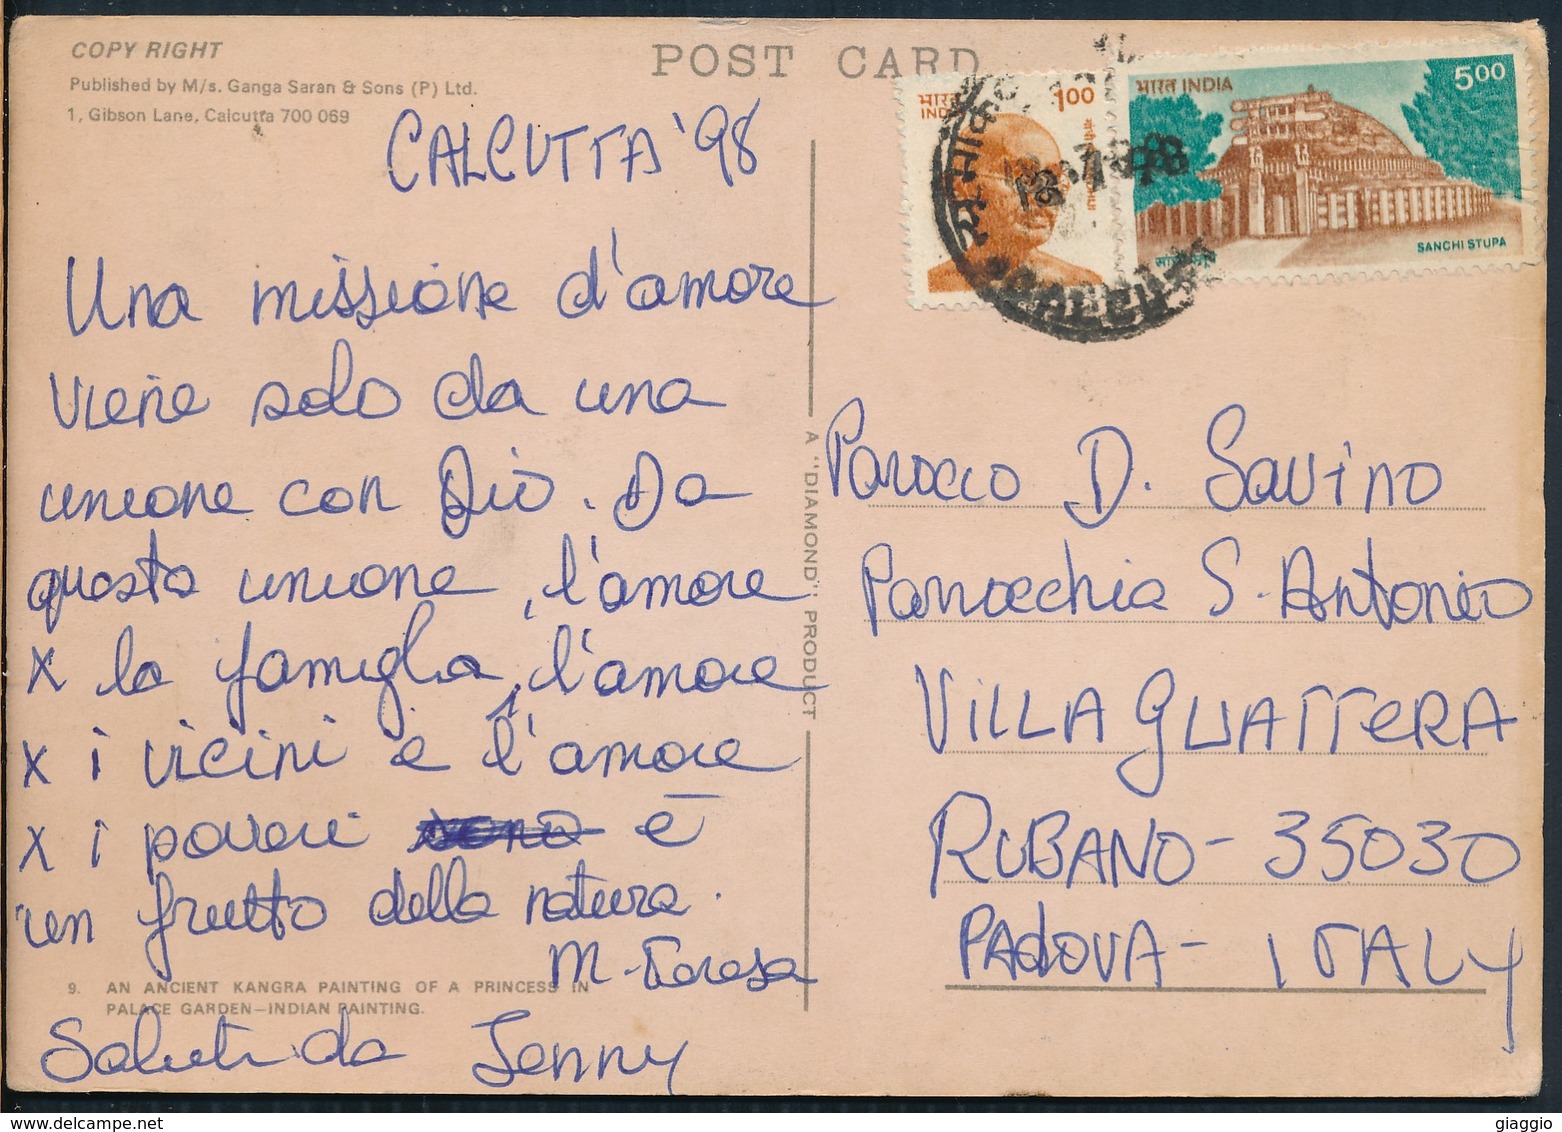 COPY RIGHT
Published by M/s. Ganga Saran & Sons (P) Ltd.
1, Gibson Lane, Calcutta 700 069
POST CARD
CALCUTTA '98
Una missione d'amore
viene solo da una
unione con Dio. Da
questa unione, l'amore
x la famiglia, l'amore
x i vicini e l'amore
x i poveri è
un frutto della natura.
M. Teresa
9. AN ANCIENT KANGRA PAINTING OF A PRINCESS IN
PALACE GARDEN—INDIAN PAINTING.
Saluti da Jenny
A "DIAMOND" PRODUCT
भारत
INDIA
1.00
भारत INDIA
5.00
SANCHI STUPA
Parroco D. Savino
Parrocchia S. Antonio
VILLA GUATTERA
RUBANO - 35030
PADOVA - ITALY
delcampe.net
giaggio